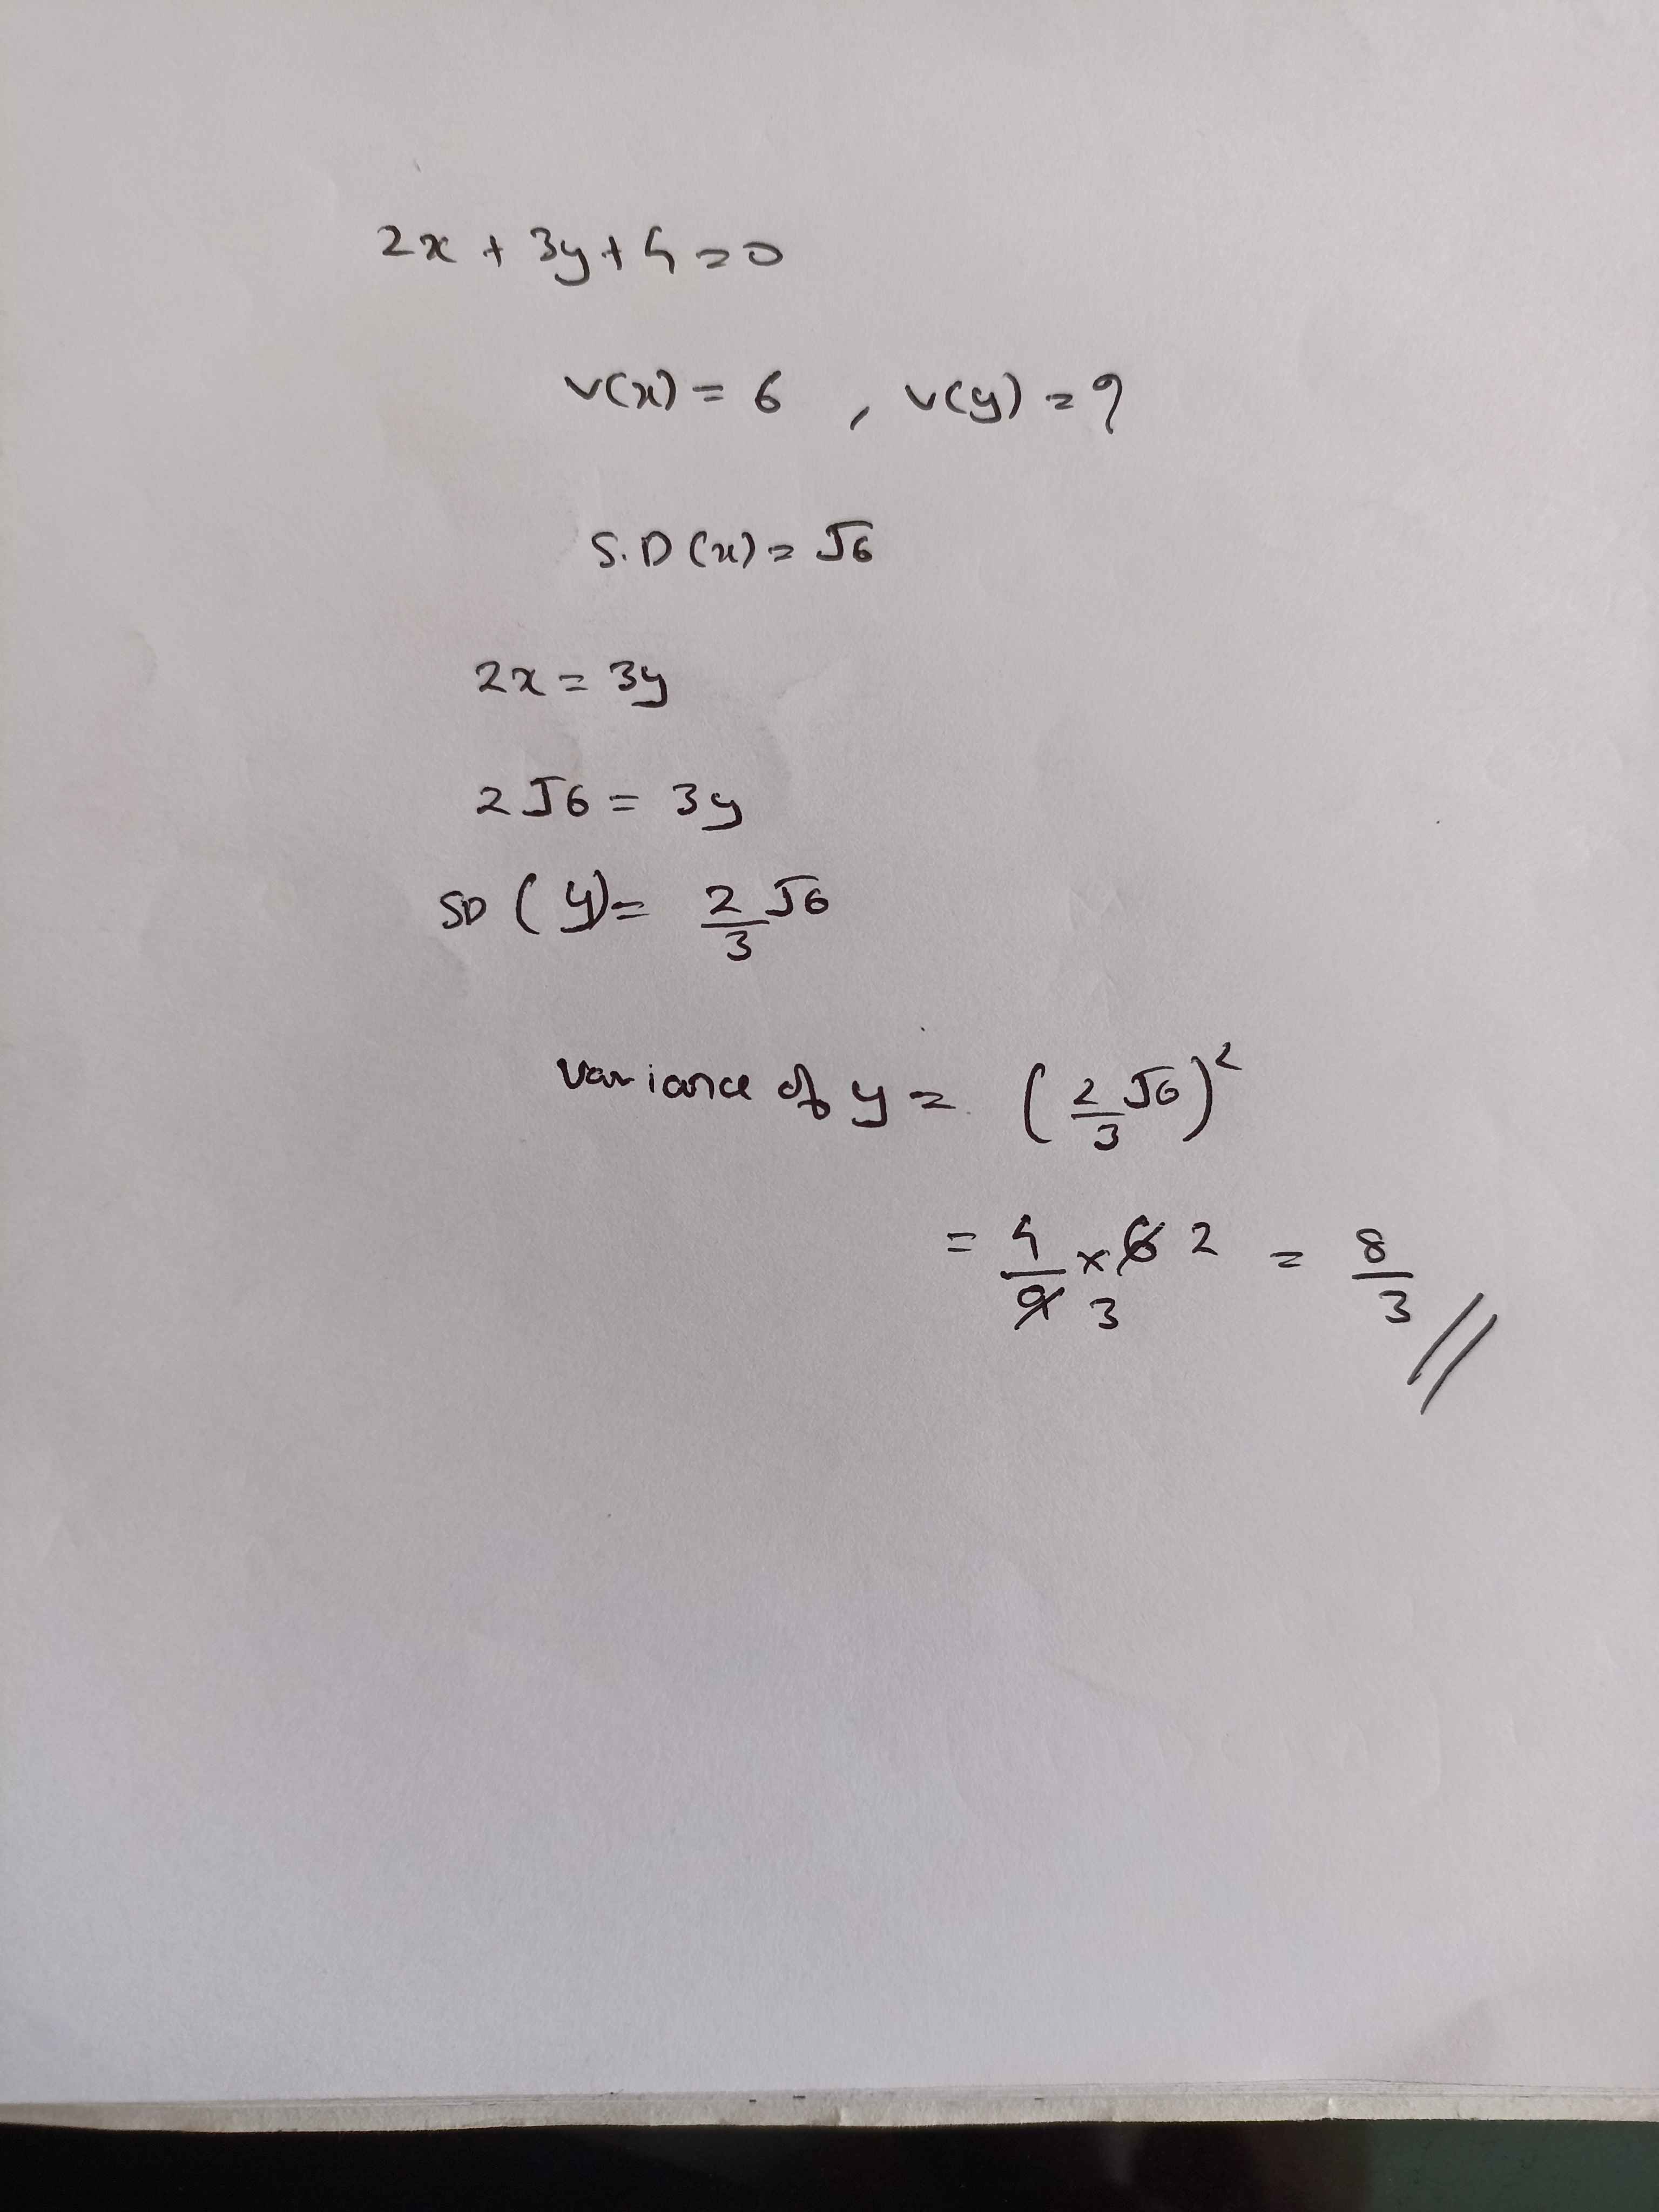 2x + 3y + 4 = 0
v(x) = 6 , v(y) = ?
S.D (x) = √6
2x = 3y
2√6 = 3y
SD (y) = 2/3 √6
variance of y = (2/3 √6)²
= 4/9 × 6 2 3 = 8/3 //